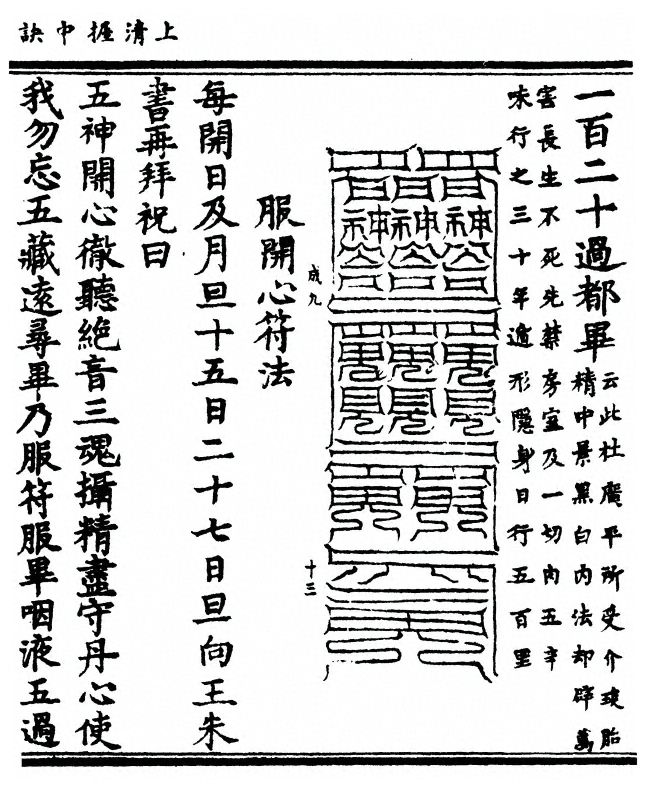 上清握中訣
一百二十過都畢
云此杜廣平所受介琰胎
精中景黑白内法却辟萬
害長生不死先禁房室及一切肉五辛
味行之三十年遁形隱身日行五百里
成九
十三
服開心符法
每開日及月旦十五日二十七日旦向王朱
書再拜祝曰
五神開心徹聽絕音三魂攝精盡守丹心使
我勿忘五藏遠尋畢乃服符服畢咽液五過